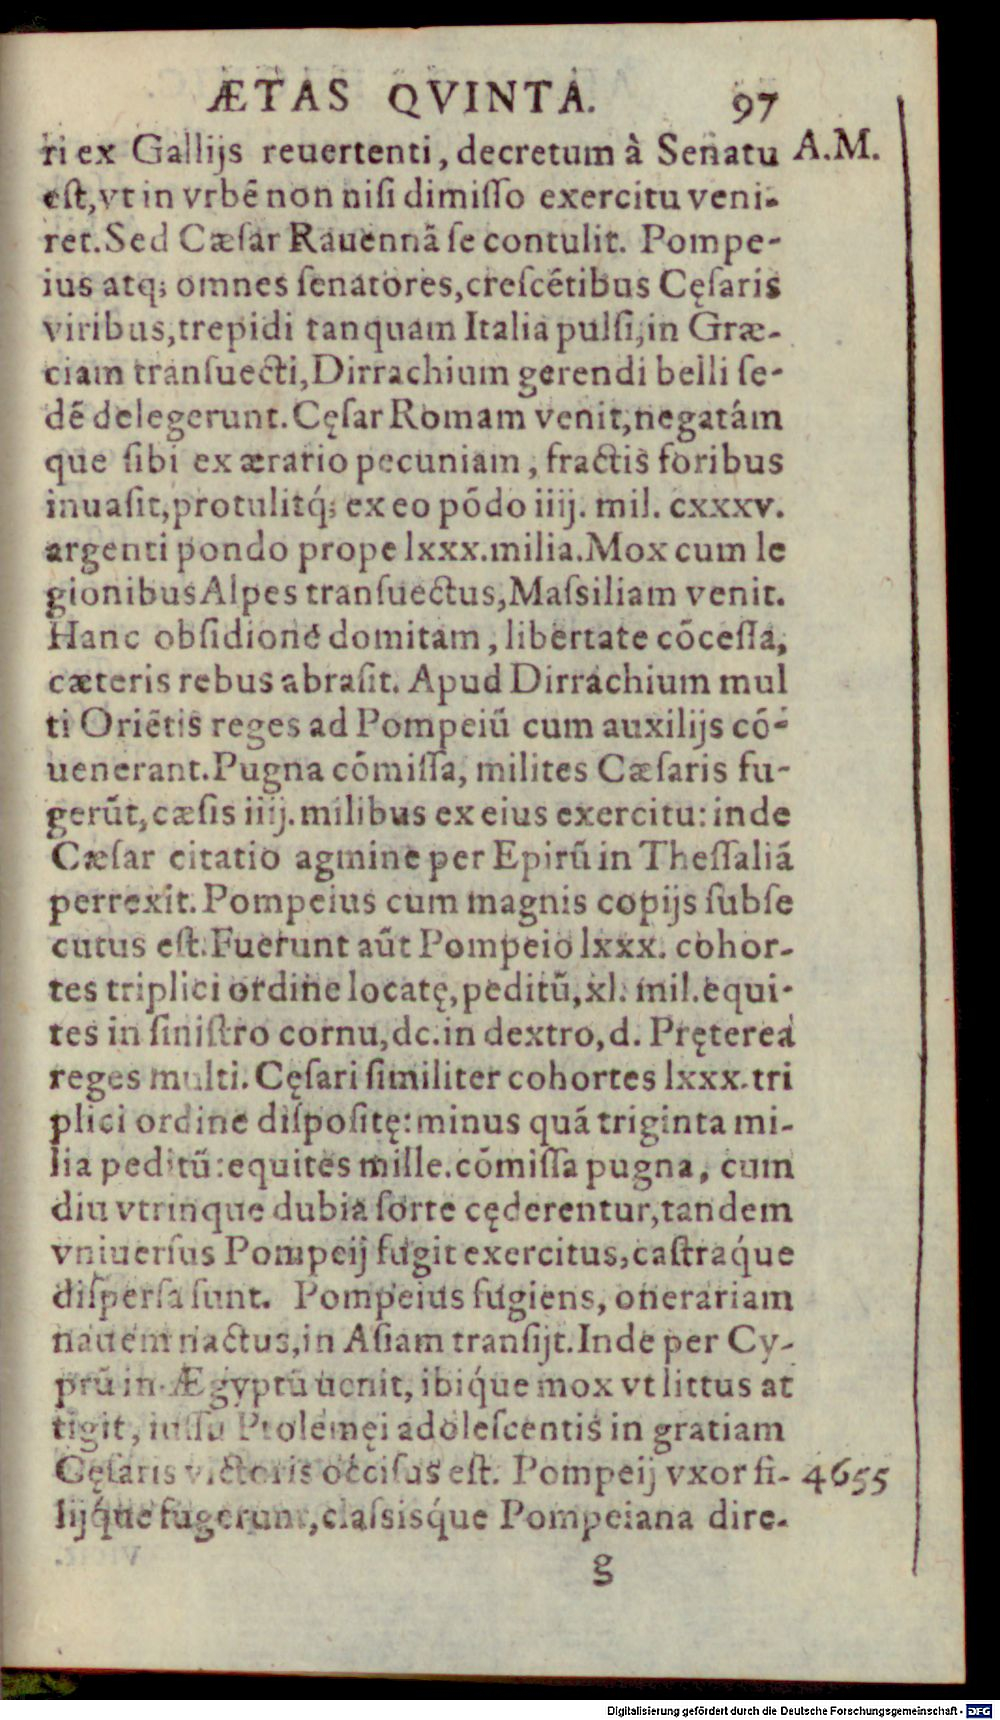 ÆTAS QVINTA. 97
ri ex Gallijs reuertenti, decretum à Senatu A.M.
est, vt in vrbẽ non nisi dimiſſo exercitu veni-
ret. Sed Cæſar Rauennã ſe contulit. Pompe-
ius atq; omnes ſenatores, creſcẽtibus Cęſaris
viribus, trepidi tanquam Italia pulſi, in Græ-
ciam tranſuecti, Dirrachium gerendi belli ſe-
dẽ delegerunt. Cęſar Romam venit, negatám
que ſibi ex ærario pecuniam, fractis foribus
inuaſit, protulitq́; ex eo põdo iiij. mil. cxxxv.
argenti pondo prope lxxx. milia. Mox cum le
gionibus Alpes tranſuectus, Maſsiliam venit.
Hanc obſidione domitam, libertate cõceſſa,
cæteris rebus abraſit. Apud Dirrachium mul
ti Oriẽtis reges ad Pompeiũ cum auxilijs cõ-
uenerant. Pugna cõmiſſa, milites Cæſaris fu-
gerũt, cæſis iiij. milibus ex eius exercitu: inde
Cæſar citatio agmine per Epirũ in Theſſaliã
perrexit. Pompeius cum magnis copijs ſubſe
cutus eſt. Fuerunt aũt Pompeio lxxx. cohor-
tes triplici ordine locatę, peditũ, xl. mil. equi-
tes in ſiniſtro cornu, dc. in dextro, d. Pręterea
reges multi. Cęſari ſimiliter cohortes lxxx. tri
plici ordine diſpoſitę: minus quã triginta mi-
lia peditũ: equites mille. cõmiſſa pugna, cum
diu vtrinque dubia ſorte cęderentur, tandem
vniuerſus Pompeij fugit exercitus, caſtraq́ue
diſperſa ſunt. Pompeius fugiens, onerariam
nauem nactus, in Aſiam tranſijt. Inde per Cy-
prũ in Ægyptũ uenit, ibiq́ue mox vt littus at
tigit, iuſſu Ptolemęi adoleſcentis in gratiam
Cęſaris victoris occiſus eſt. Pompeij vxor fi- 4655
lijq́ue fugerunt, claſsisq́ue Pompeiana dire-
g
Digitalisierung gefördert durch die Deutsche Forschungsgemeinschaft - DFG